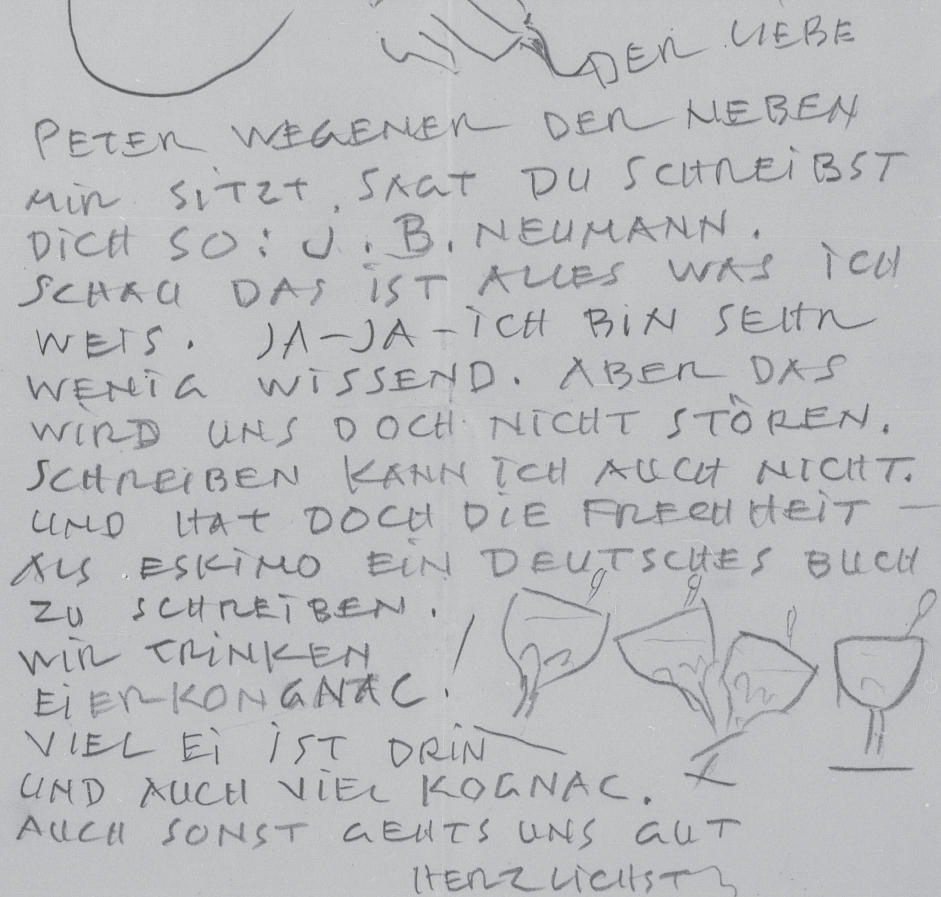 DER LIEBE
PETER WEGENER DER NEBEN
MIR SITZT, SAGT DU SCHREIBST
DICH SO: J. B. NEUMANN.
SCHAU DAS IST ALLES WAS ICH
WEIS. JA-JA-ICH BIN SEHR
WENIG WISSEND. ABER DAS
WIRD UNS DOCH NICHT STÖREN.
SCHREIBEN KANN ICH AUCH NICHT.
UND HAT DOCH DIE FRECHHEIT —
ALS ESKIMO EIN DEUTSCHES BUCH
ZU SCHREIBEN.
WIR TRINKEN
EIERKONGNAC!
VIEL EI IST DRIN
UND AUCH VIEL KOGNAC.
AUCH SONST GEHTS UNS GUT
HERZLICHST